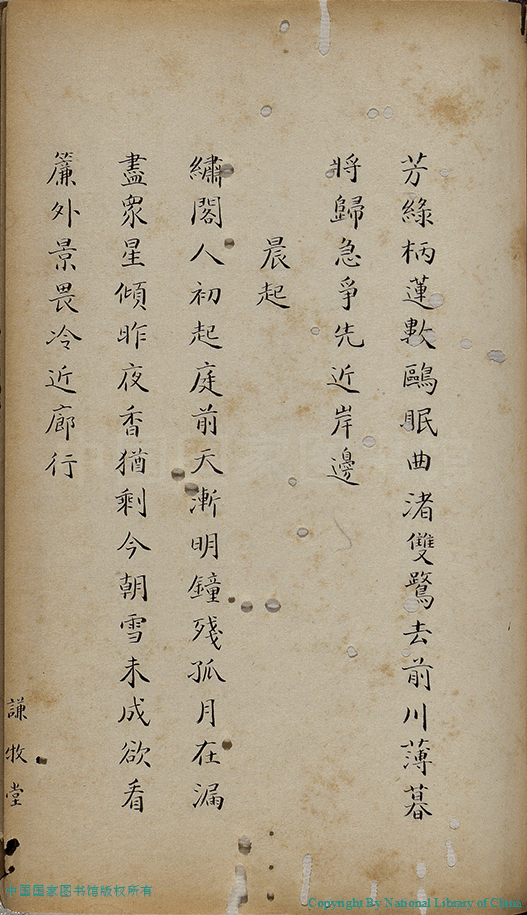 芳綠柄蓮數鷗眠曲渚雙鷺去前川薄暮
將歸急爭先近岸邊
晨起
繡閣人初起庭前天漸明鐘殘孤月在漏
盡衆星傾昨夜香猶剩今朝雪未成欲看
簾外景畏冷近廊行
謙牧堂
中国国家图书馆版权所有
Copyright By National Library of China